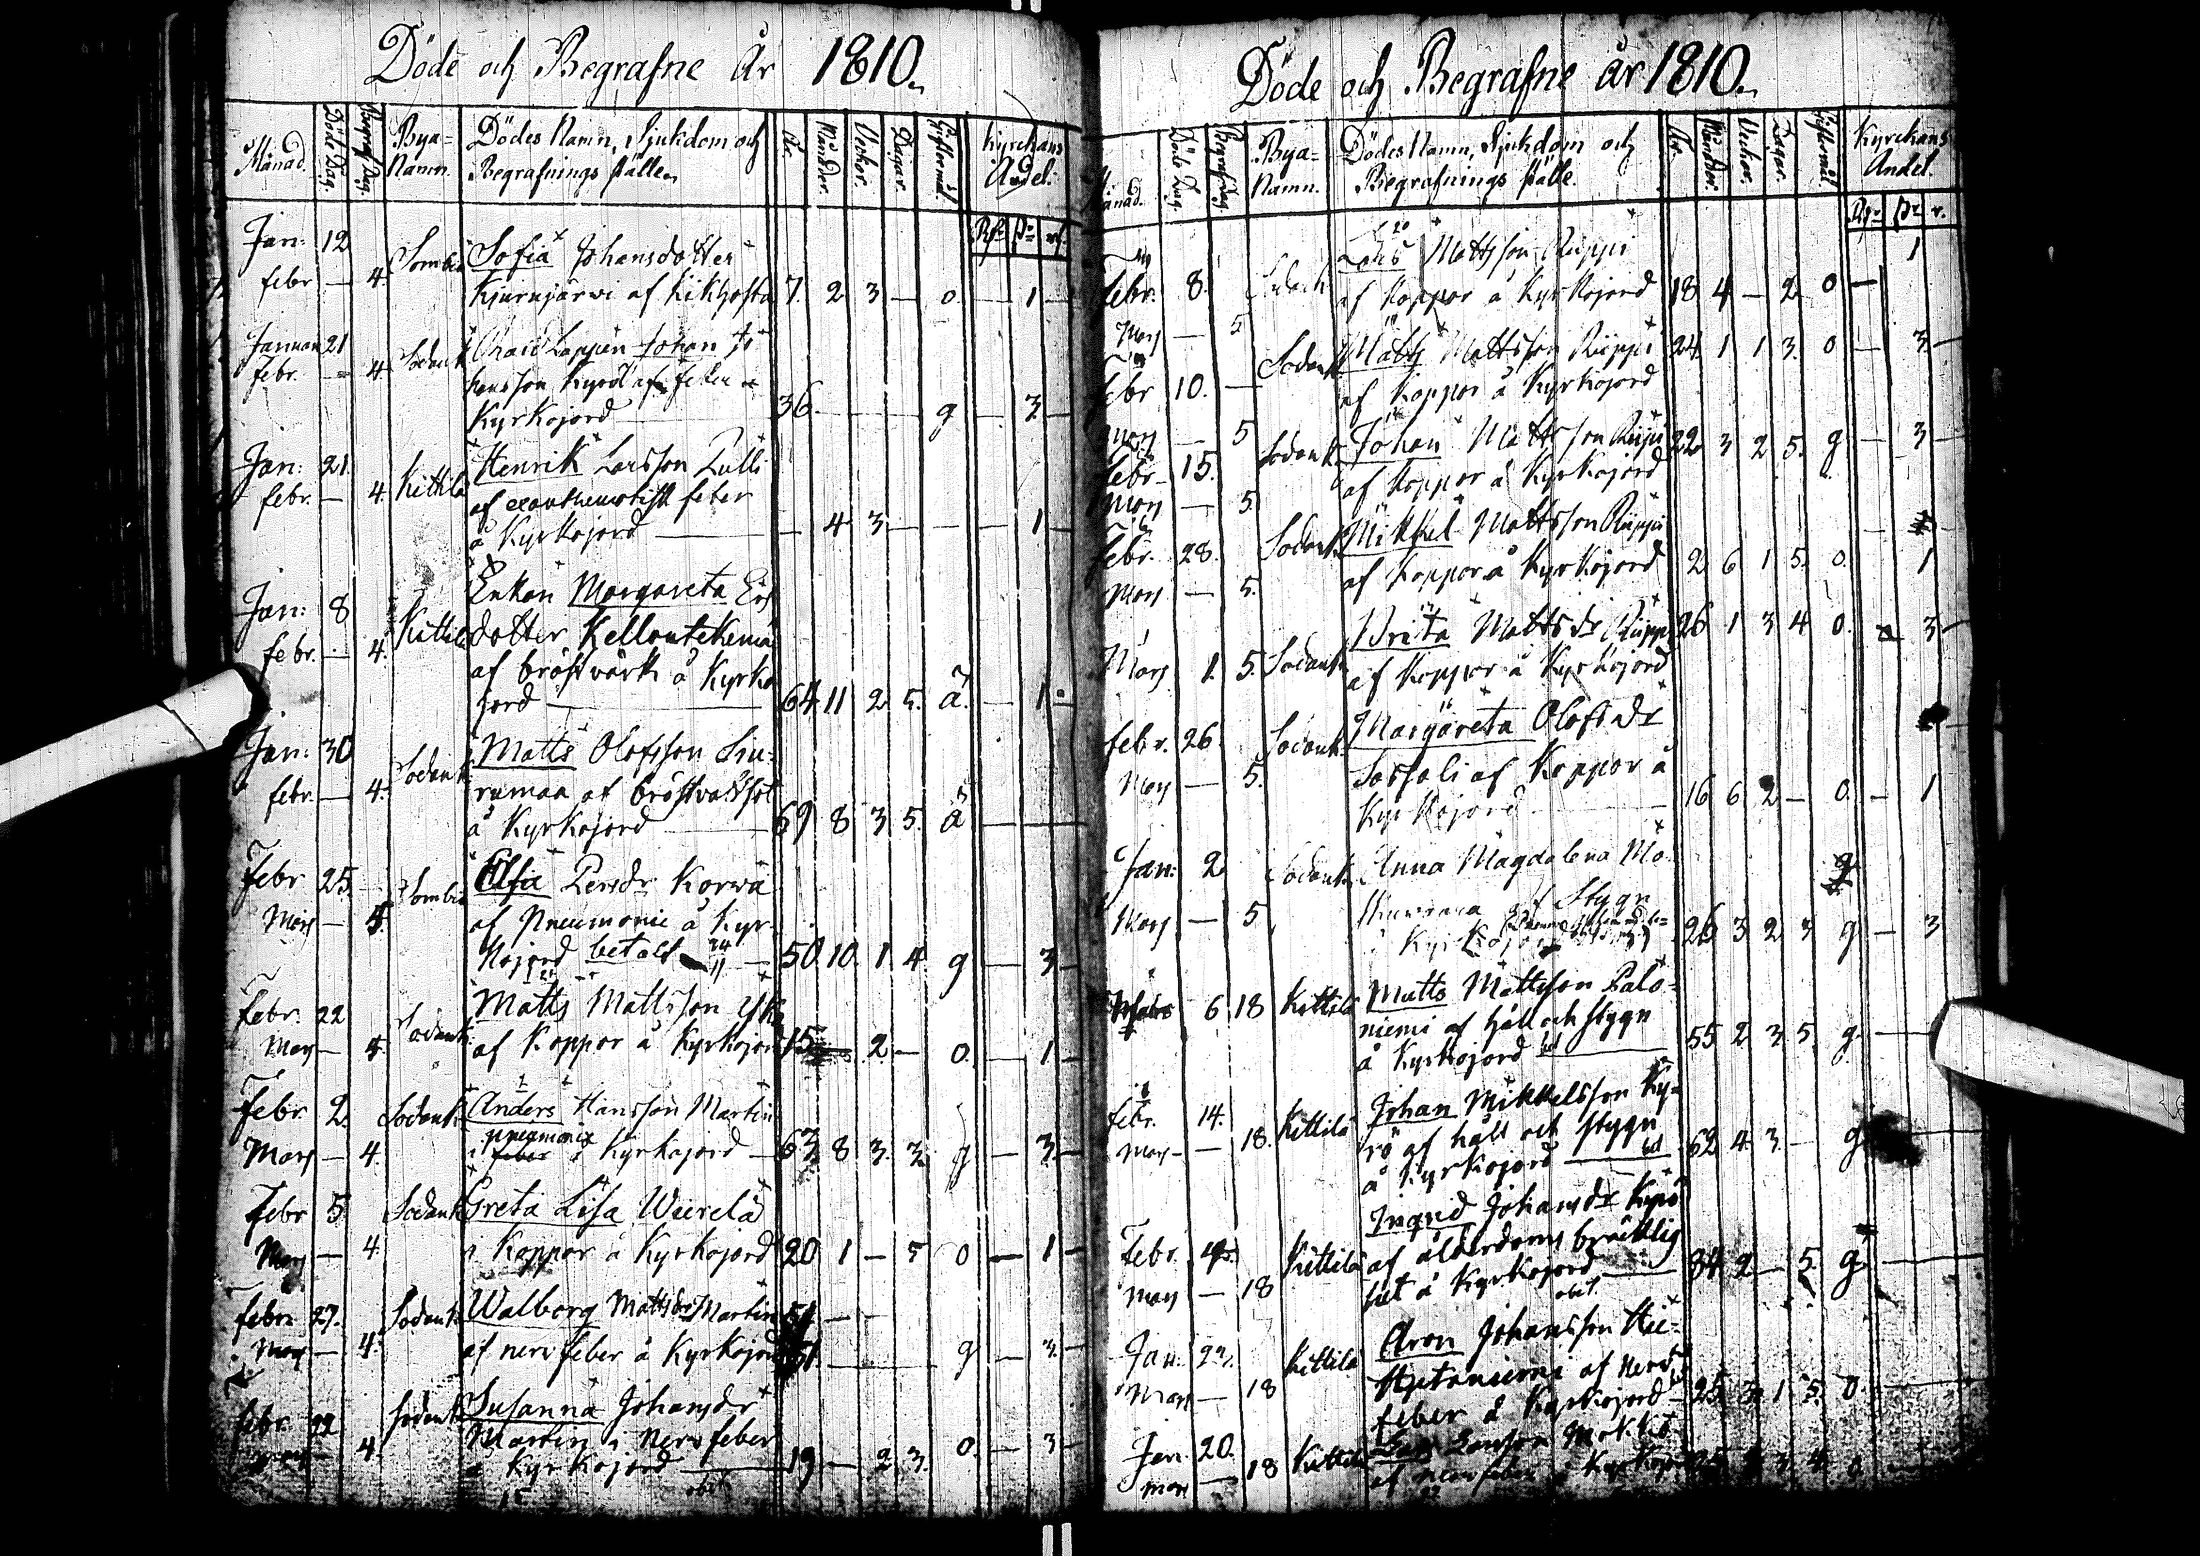 Döde och Begrafne År 1810.
Månad. Döde Dag. Begrafn. Dag. Bya-Namn. Dödes Namn, Sjukdom och Begrafnings ställe. År. Månader. Veckor. Dagar. Giftermål. Kyrckans Andel.
Jan: 12 Sofia Johansdotter
febr — 4. Sombio Kjurujärwi af Kikhosta 7. 2 3 — o. — 1 —
Januari 21 Sodank Lappen Johan Jo
Febr. — 4. hansson
Kyrkojord 36. g — 3 —
Jan: 21. Henrik Larsson
febr. — 4. Kittilä af feber
å Kyrkojord — 4 3 — — 1 —
Jan: 8 Enkan Margareta
febr. — 4. Kittilä dotter
af bröstvärk å Kyrko
jord 64 11 2 5. ä. — 1
Jan: 30 Sodank. Matts Olofsson Siu-
febr. — 4. rumaa af
å Kyrkojord 69 8 3 5. ä
Febr 25. Sombio Persdr Korwa
Mars — af Pneumonie å Kyr-
kojord betalt 50. 10. 1. 4. g — 3 —
Febr. 22 Sodank. Matts Mattsson
Mars — af Koppor å Kyrkojord 15 2 — o. — 1 —
Febr 2. Sodank. Anders Hansson Martin
Mars — 4. pneumonie å Kyrkojord — 63 8 3. 3. g — 3. —
Febr 5 Sodank Greta Lisa Wierelä
Mars — 4 i Koppor å Kyrkojord 20 1 — 5 o — 1 —
febr: 27. Sodank. Walborg Mattsdr Martin
Mars — 4. af nervfeber å Kyrkojord 51. g — 3. —
febr. 22 Sodank Susanna Johansdr
4. Martin i Nervfeber
å Kyrkojord 19 — 2 3. o. — 3 —
Döde och Begrafne år 1810.
Månad. Döde Dag. Begrafn. Dag. Bya-Namn. Dödes Namn, Sjukdom och Begrafnings ställe. År. Månader. Veckor. Dagar. Giftermål. Kyrckans Andel.
Lars Mattsson Riippi 1
febr. 8. af Koppor å Kyrkojord 18 4 — 2 o —
Mars — 5 Sodank Matts Mattsson Riippi 24 1 1 3. o — 3. —
febr 10. — af Koppor å Kyrkojord
Mars — 5 Sodank Johan Mattsson Riippi 22 3 2 5. g — 3 —
febr. 15. af Koppor å Kyrkojord
Mars — 5. Sodank Mikkel Mattsson Riippi
febr. 28. af Koppor å Kyrkojord 2 6 1 5. o. 1
Mars — 5. Brita Mattsdr Riippi 26 1 3 4 o. 3 —
Mars 1. 5. Sodank af Koppor å Kyrkojord
febr. 26. Sodank. Margareta Olofsdr
Mars — 5. Sassali af Koppor å
Kyrkojord 16 6 2 — o. — 1
Jan: 2 Sodank Anna Magdalena
Mars — 5 af Stygn
å Kyrkojord 26 3 2 3 g — 3
6 18 Kittilä Matts Mattsson Palo-
niemi af håll och stygn
å Kyrkojord 55 2 3. 5. g.
febr. 14. Kittilä Johan Mikkelsson Ky-
Mars — 18. rö af håll och stygn
å Kyrkojord 62 4. 3. — g.
Ingrid Johansdr Kyrö
Febr. Kittilä af ålderdoms bräcklig
Mars — 18 het å Kyrkojord 84 2 — 5. g.
Jan: 23. Kittilä Aron Johansson Hie-
Mars — 18 af Nerv-
feber å Kyrkojord — 25 3. 1. 5. o.
Jan: 20. Kittilä
Mars — 18 af nervfeber å Kyrkojord